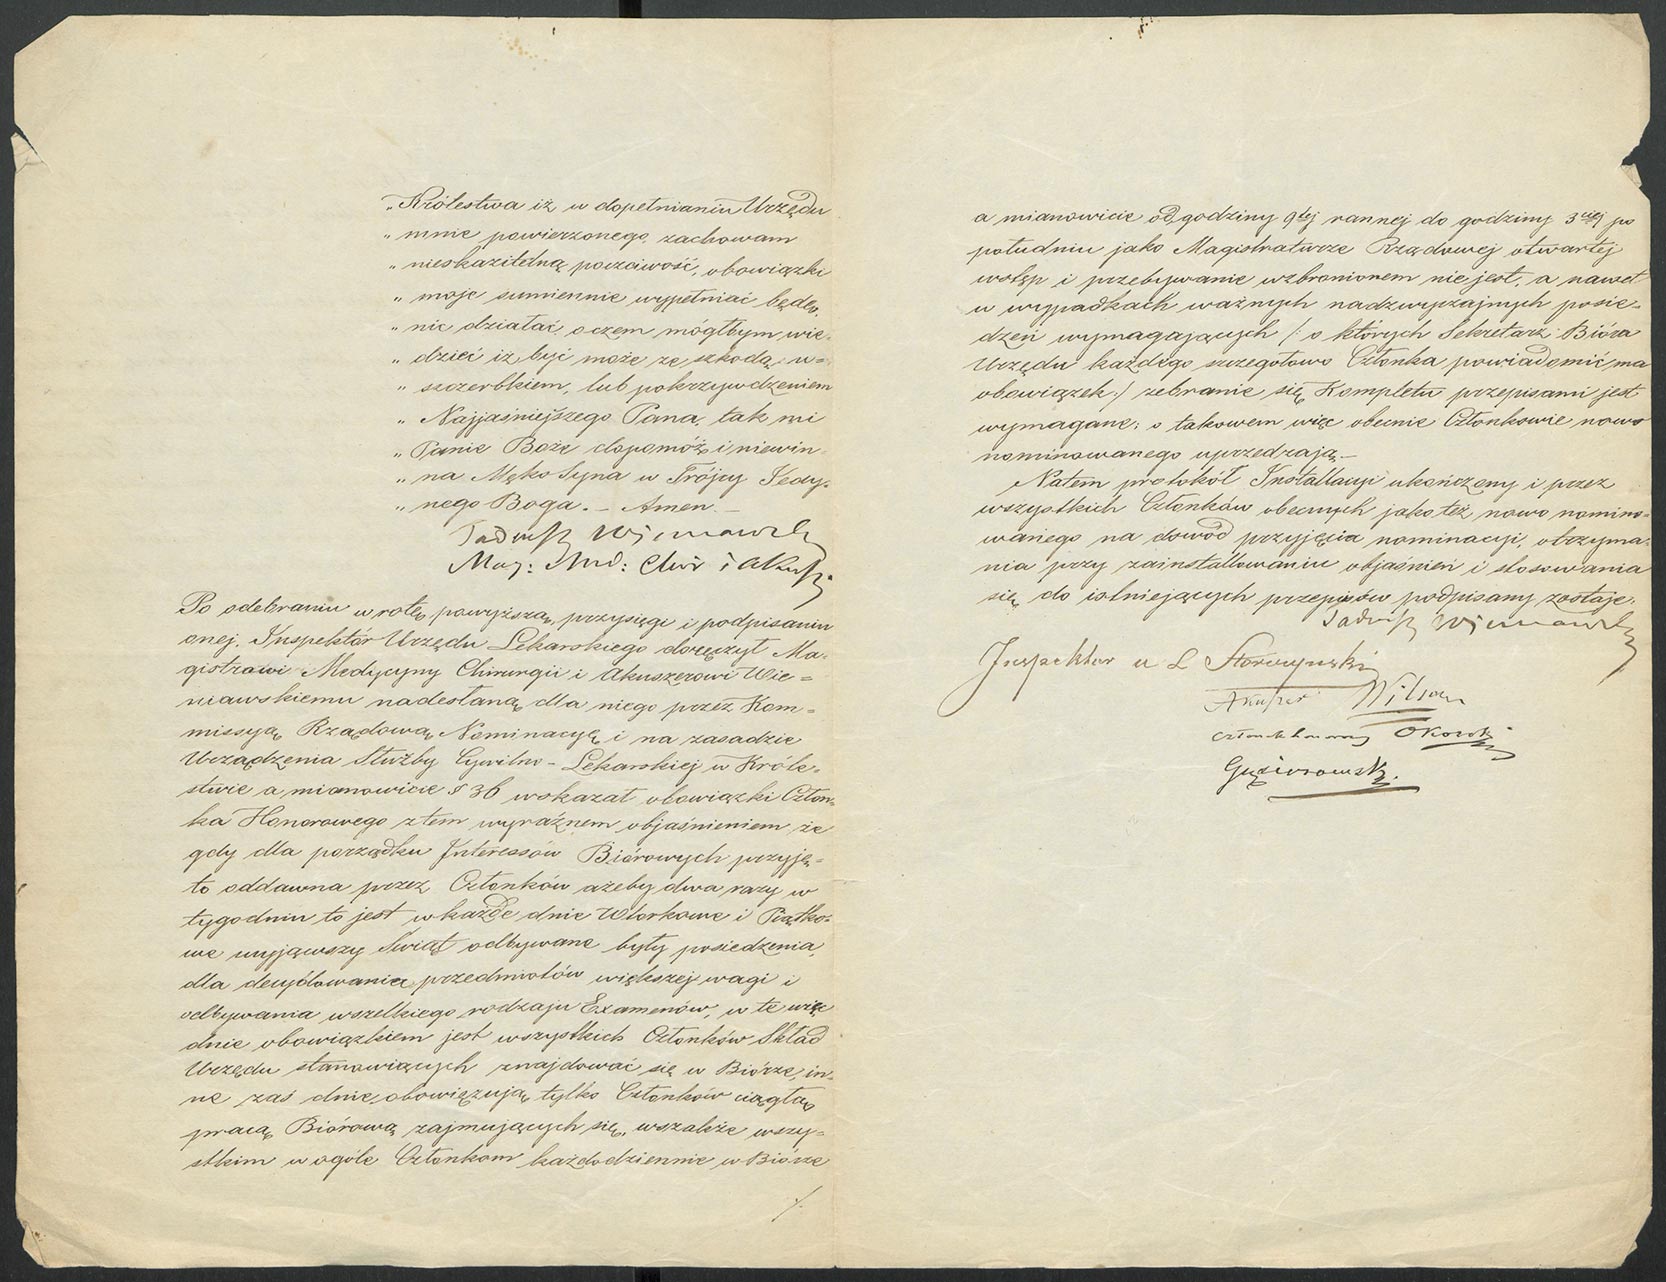 „Królestwa iż w dopełnianiu Urzędu
„mnie powierzonego zachowam
„nieskazitelną poczciwość, obowiązki
„moje sumiennie wypełniać będę,
„nic działać, o czem mógłbym wie-
„dzieć iż być może ze szkodą, u-
„szczerbkiem, lub pokrzywdzeniem
„Najjaśniejszego Pana, tak mi
„Panie Boże dopomóż i niewin
„na Męko Syna w Trójcy Jedy-
„nego Boga. – Amen. –
Tadeusz Wieniawski
Mag: Med: Chir i Akusz
Po odebraniu w rotę powyższą przysięgi i podpisaniu
onej. Inspektor Urzędu Lekarskiego doręczył Ma-
gistrowi Medycyny Chirurgii i Akuszerowi Wie=
niawskiemu nadesłaną dla niego przez Kom=
missyą Rządową Nominacyę i na zasadzie
Urządzenia Służby Cywilno-Lekarskiej w Króle-
stwie a mianowicie § 36 wskazał obowiązki Człon-
ka Honorowego z tem wyraźnem objaśnieniem że
gdy dla porządku Interessów Biórowych przyję-
to oddawna przez Członków ażeby dwa razy w
tygodniu to jest w każde dnie Wtorkowe i Piątko-
we wyjąwszy Świąt odbywane były posiedzenia,
dla decydowania przedmiotów większej wagi i
odbywania wszelkiego rodzaju Examenów, w te więc
dnie obowiązkiem jest wszystkich Członków Skład
Urzędu stanowiących znajdować się w Biórze, in-
ne zaś dnie obowiązują tylko Członków ciągłą
pracą Biórową zajmujących się, wszakże wszy-
stkim w ogóle Członkom każdodziennie w Biórze
./.
a mianowicie od godziny 9tej rannej do godziny 3ciej po
południu jako Magistraturze Rządowej otwartej
wstęp i przebywanie wzbronionem nie jest, a nawet
w wypadkach ważnych nadzwyczajnych posie-
dzeń wymagających /: o których Sekretarz Bióra
Urzędu każdego szczegółowo Członka powiadomić ma
obowiązek :/ zebranie się Kompletu przepisami jest
wymagane; o takowem więc obecnie Członkowie nowo
nominowanego uprzedzają. –
Natem protokół Installacyi ukończony i przez
wszystkich Członków obecnych jako też nowo nomino-
wanego na dowód przyjęcia nominacyi, otrzyma-
nia przy zainstallowaniu objaśnień i stosowania
się do istniejących przepisów podpisany zostaje.
Tadeusz Wieniawski
Inspektor U L Skoczyński
Akuszer Wilson
członek honorowy Okorski
Gąsiorowski.